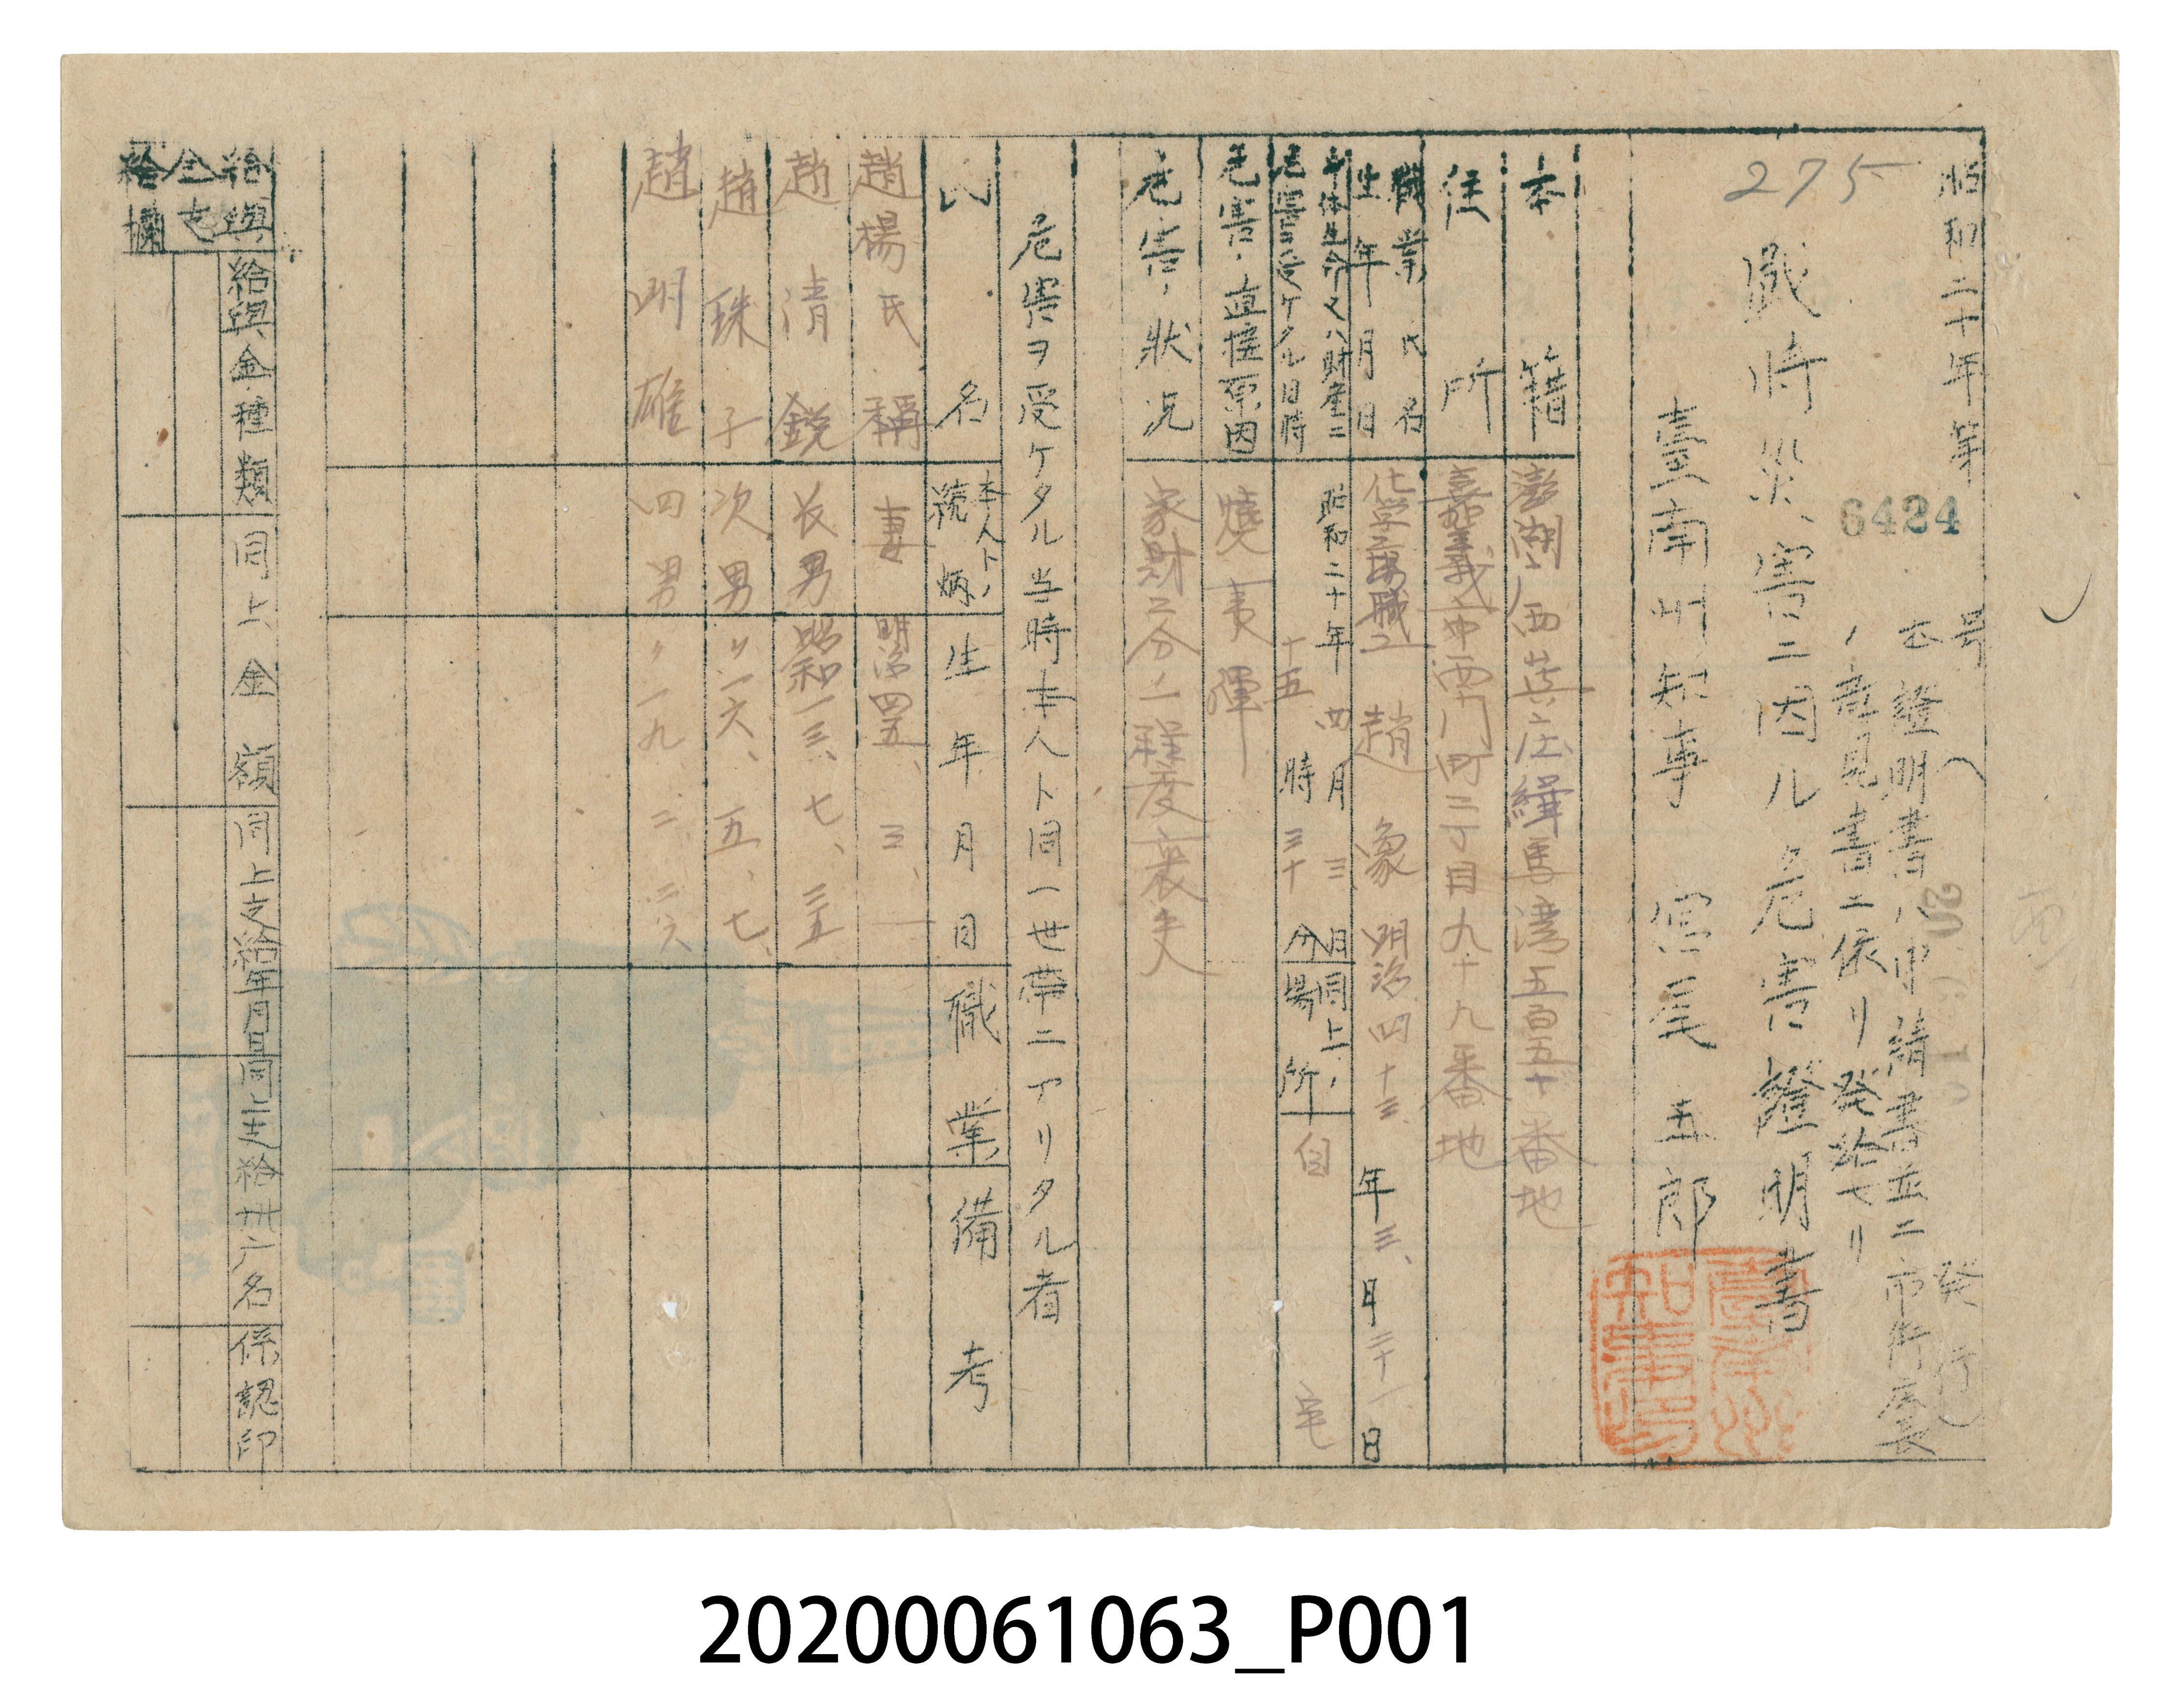 昭和二十年第 6424 号 (発行)
本證明書ハ申請書並ニ市街庄長
ノ意見書ニ依リ発給セリ
275
戰時災害ニ因ル危害證明書
臺南州知事 宮尾五郎
本籍 澎湖 西 庄緝馬湾五百五十番地
住所 嘉義市西門町二丁目九十九番地
職業氏名 化学工場職工 趙 象
生年月日 明治四十三年三月三十一日
身体生命又ハ財産ニ危害ヲ受ケタル日時 昭和二十年四月三日十五時三十分
同上ノ場所 自宅
危害ノ直接原因 燒夷彈
危害ノ状況 家財二分ノ一程度喪失
危害ヲ受ケタル当時本人ト同一世帯ニアリタル者
氏名 本人トノ続柄 生年月日 職業 備考
趙楊氏稱 妻 明治四五、三、一
趙清鋭 長男 昭和一三、七、三五
趙珠子 次男 〃一六、五、七、
趙明雄 四男 〃一九、二、二六
給與金支給欄
給與金種類 同上金額 同上支給年月日 同上支給州庁名 係認印
20200061063_P001